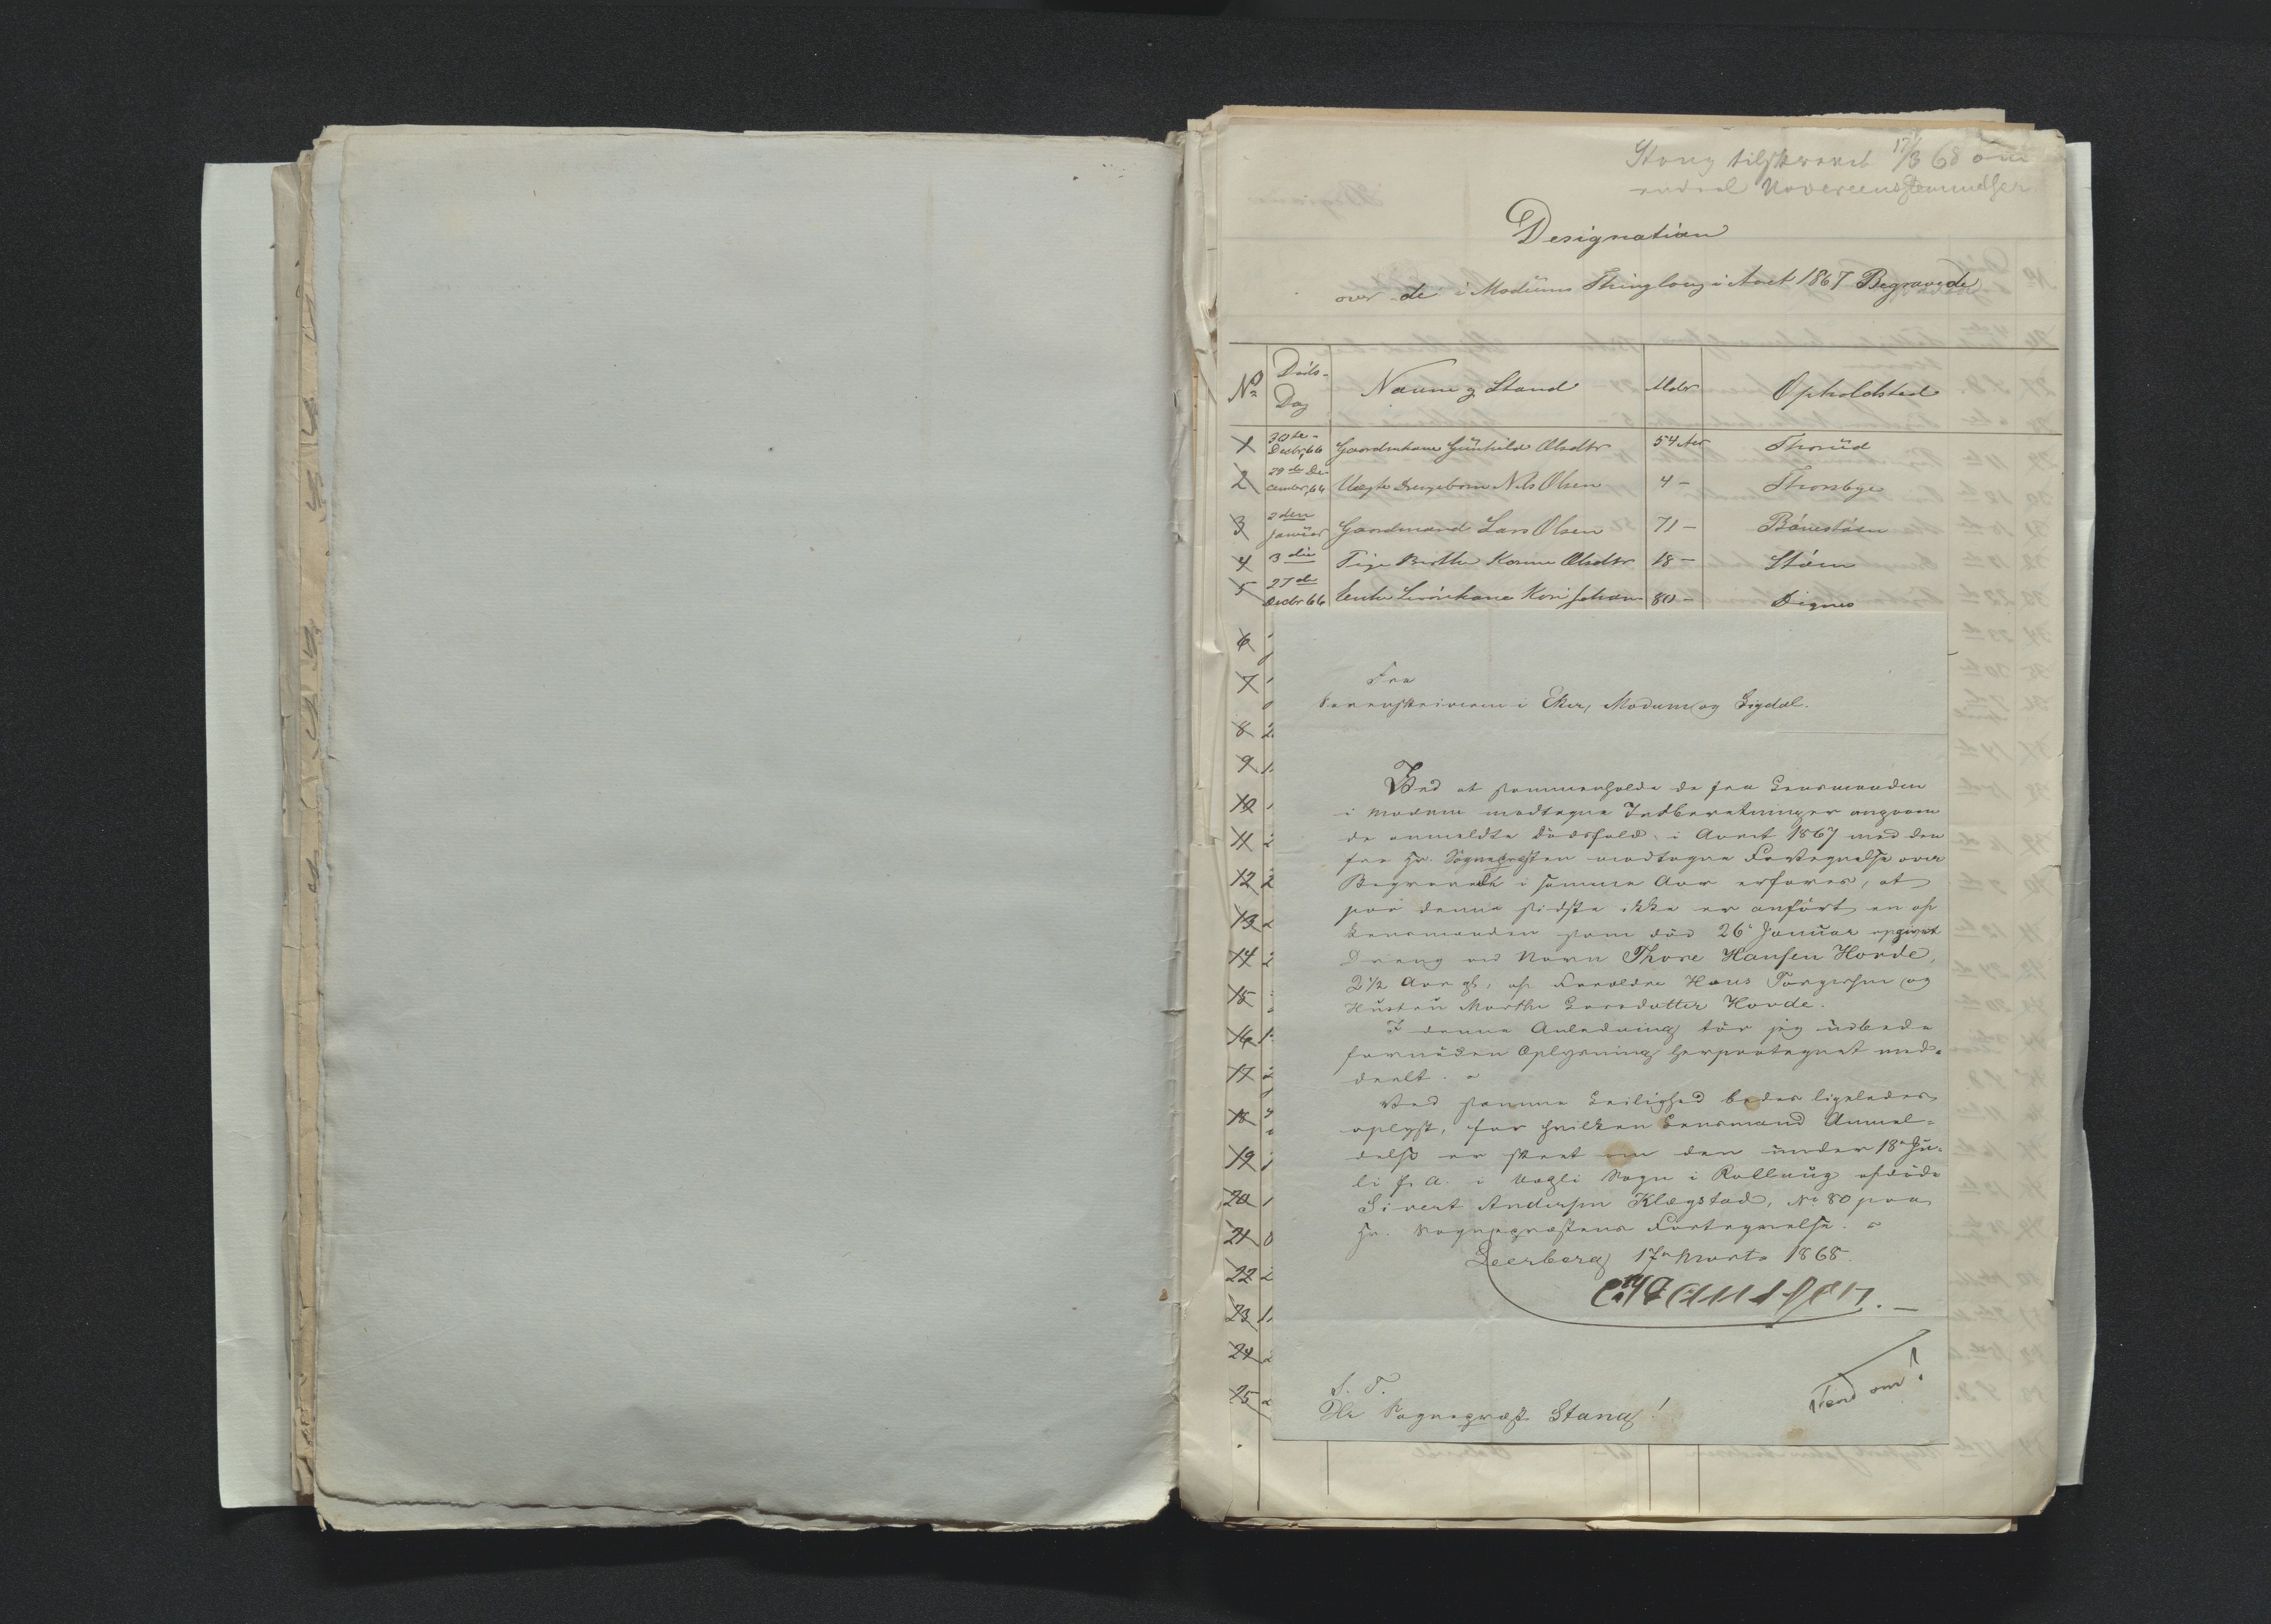 Stang tilskrevet 17/3 68 om
endeel Uovereensstemmelser
Designation
over de i Modums Thinglaug i Aaret 1867 Begravede
No Döds- Dag Navn og Stand Alder Opholdsted
1 30te Decbr, 66 Gaardmkone Gunhild Olsdtr 54 Aar Thorud
2 29de December, 66 Ole Nils Olsen 4 - Thorsbye
3 2den Januar Gaardmand Lars Olsen 71 -
4 3die Pige Berthe Karine Olsdtr 18 - Stöen
5 27de Decbr 66 Enke Kari Johans 80 - Dignes
6
7
8
9
10
11
12
13
14
15
16
17
18
19
20
21
22
23
24
25
Fra
Sorenskriveren i Eker, Modum og Sigdal.
Ved at sammenholde de fra Lensmanden
i Modum modtagne Indberetninger angaaen
de anmeldte Dödsfald i Aaret 1867 med den
fra Hr. Sognepræsten modtagne Fortegnelse over
Begravede i samme Aar erfares, at
paa denne sidste ikke er anfört en af
Lensmanden som död 26 Januar opgivet
Dreng ved Navn Thore Hansen Hovde,
2½ Aar gl, af Forældre Hans Torgersen og
Hustru Marthe Larsdatter Hovde.
I denne Anledning tör jeg udbede
fornöden Oplysning herpaategnet med-
deelt.
Ved samme Leilighed bedes ligeledes
oplyst, for hvilken Lensmand Anmel-
delse er skeet om den under 18 Ju-
li f. A. i Vegli Sogn i Rollaug afdöde
Sivert Andersen Klægstad, No 80 paa
Hr. Sognepræstens Fortegnelse.
Leerberg 17 Marts 1868.
S. T.
Hr Sognepræst Stang!
Vend om!